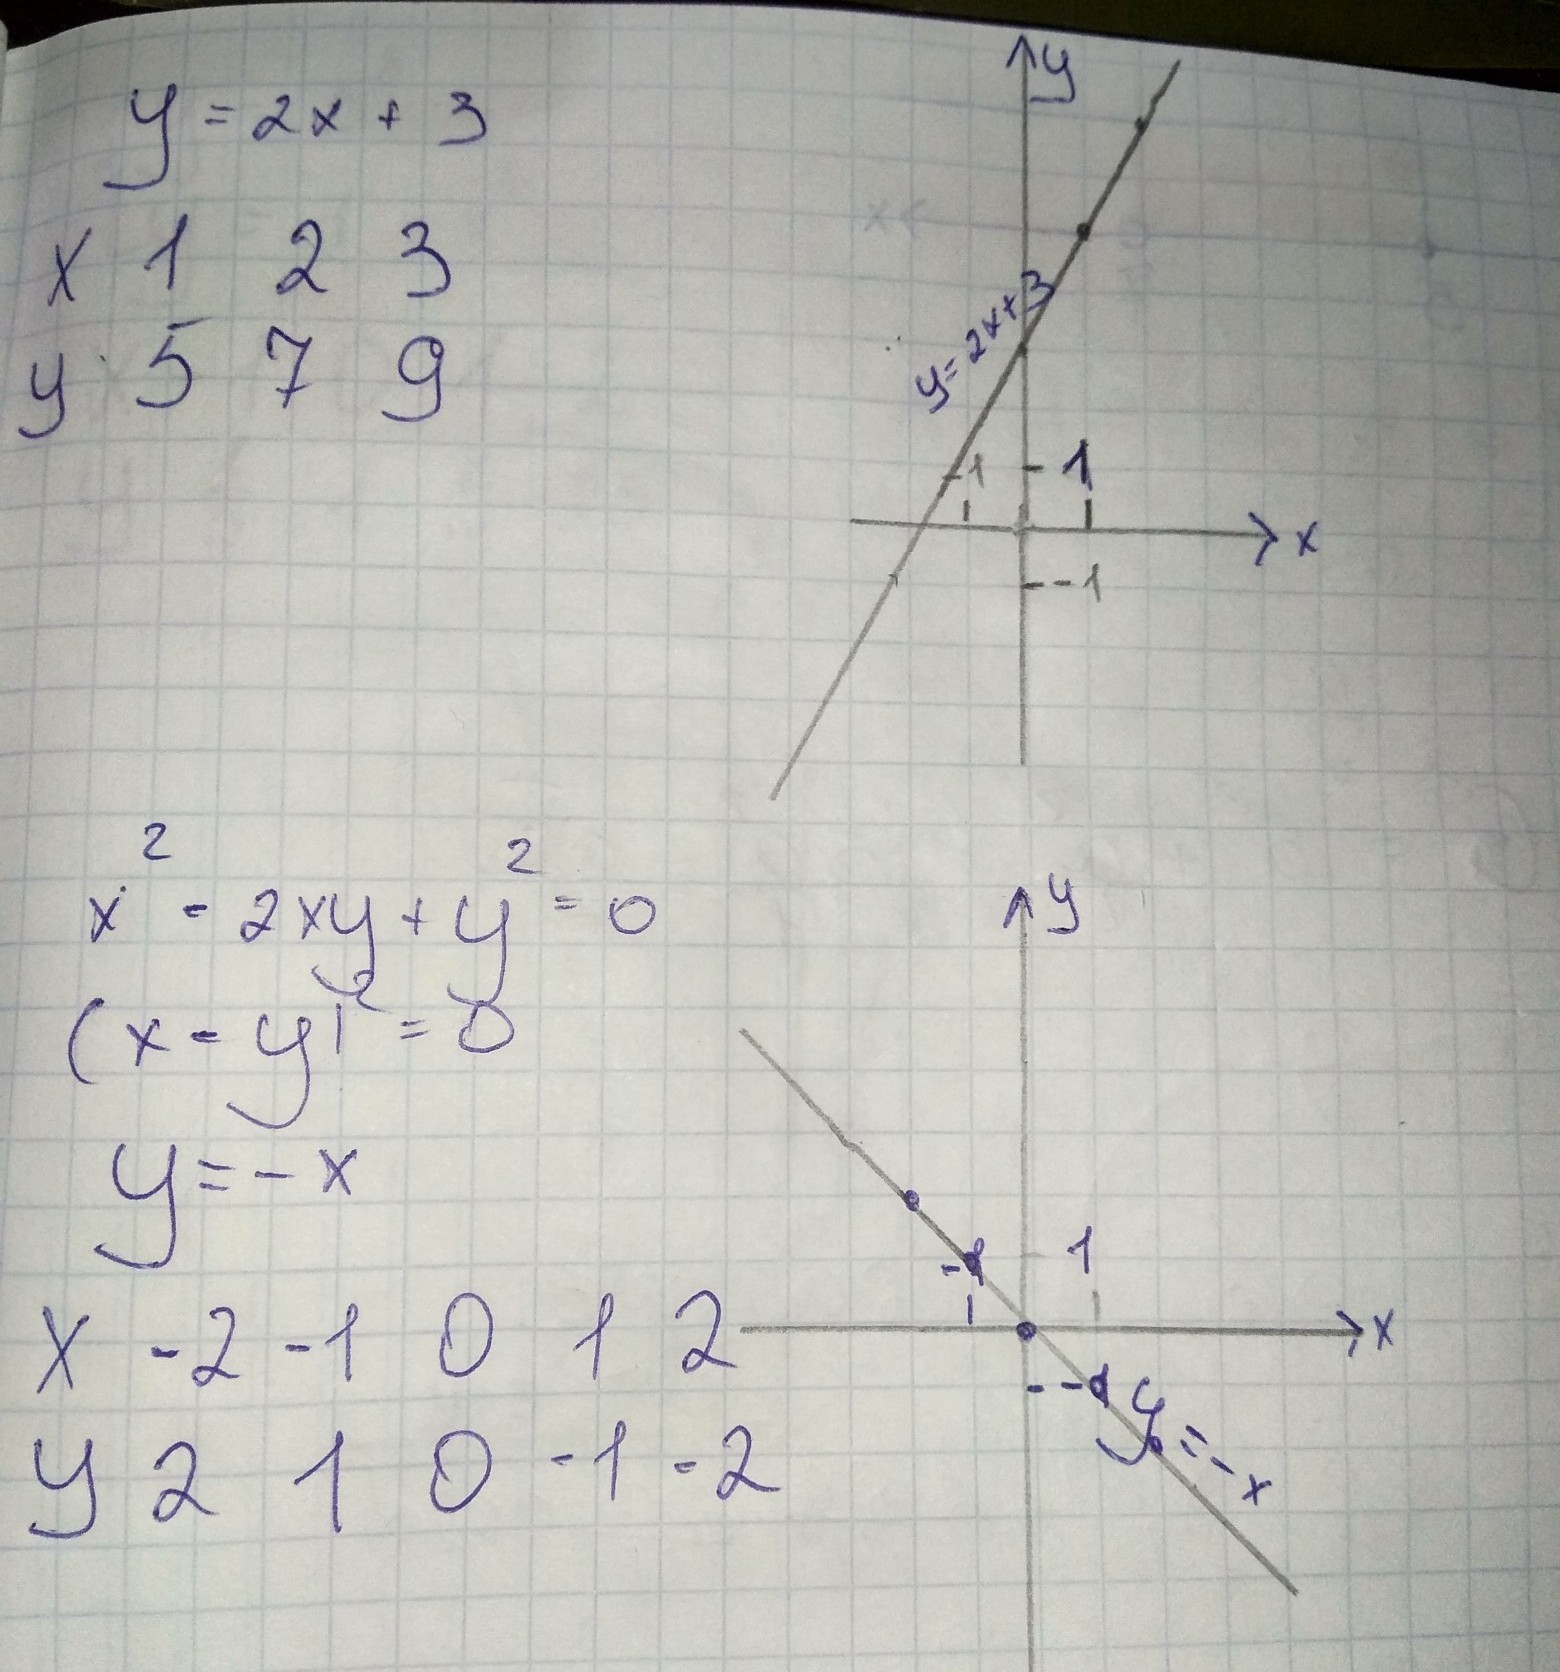 y = 2x + 3
x 1 2 3
y 5 7 9
y
y = 2x + 3
-1 1
x
-1
x² - 2xy + y² = 0
(x - y)² = 0
y = - x
x -2 -1 0 1 2
y 2 1 0 -1 -2
y
-1 1
x
-1
y = - x